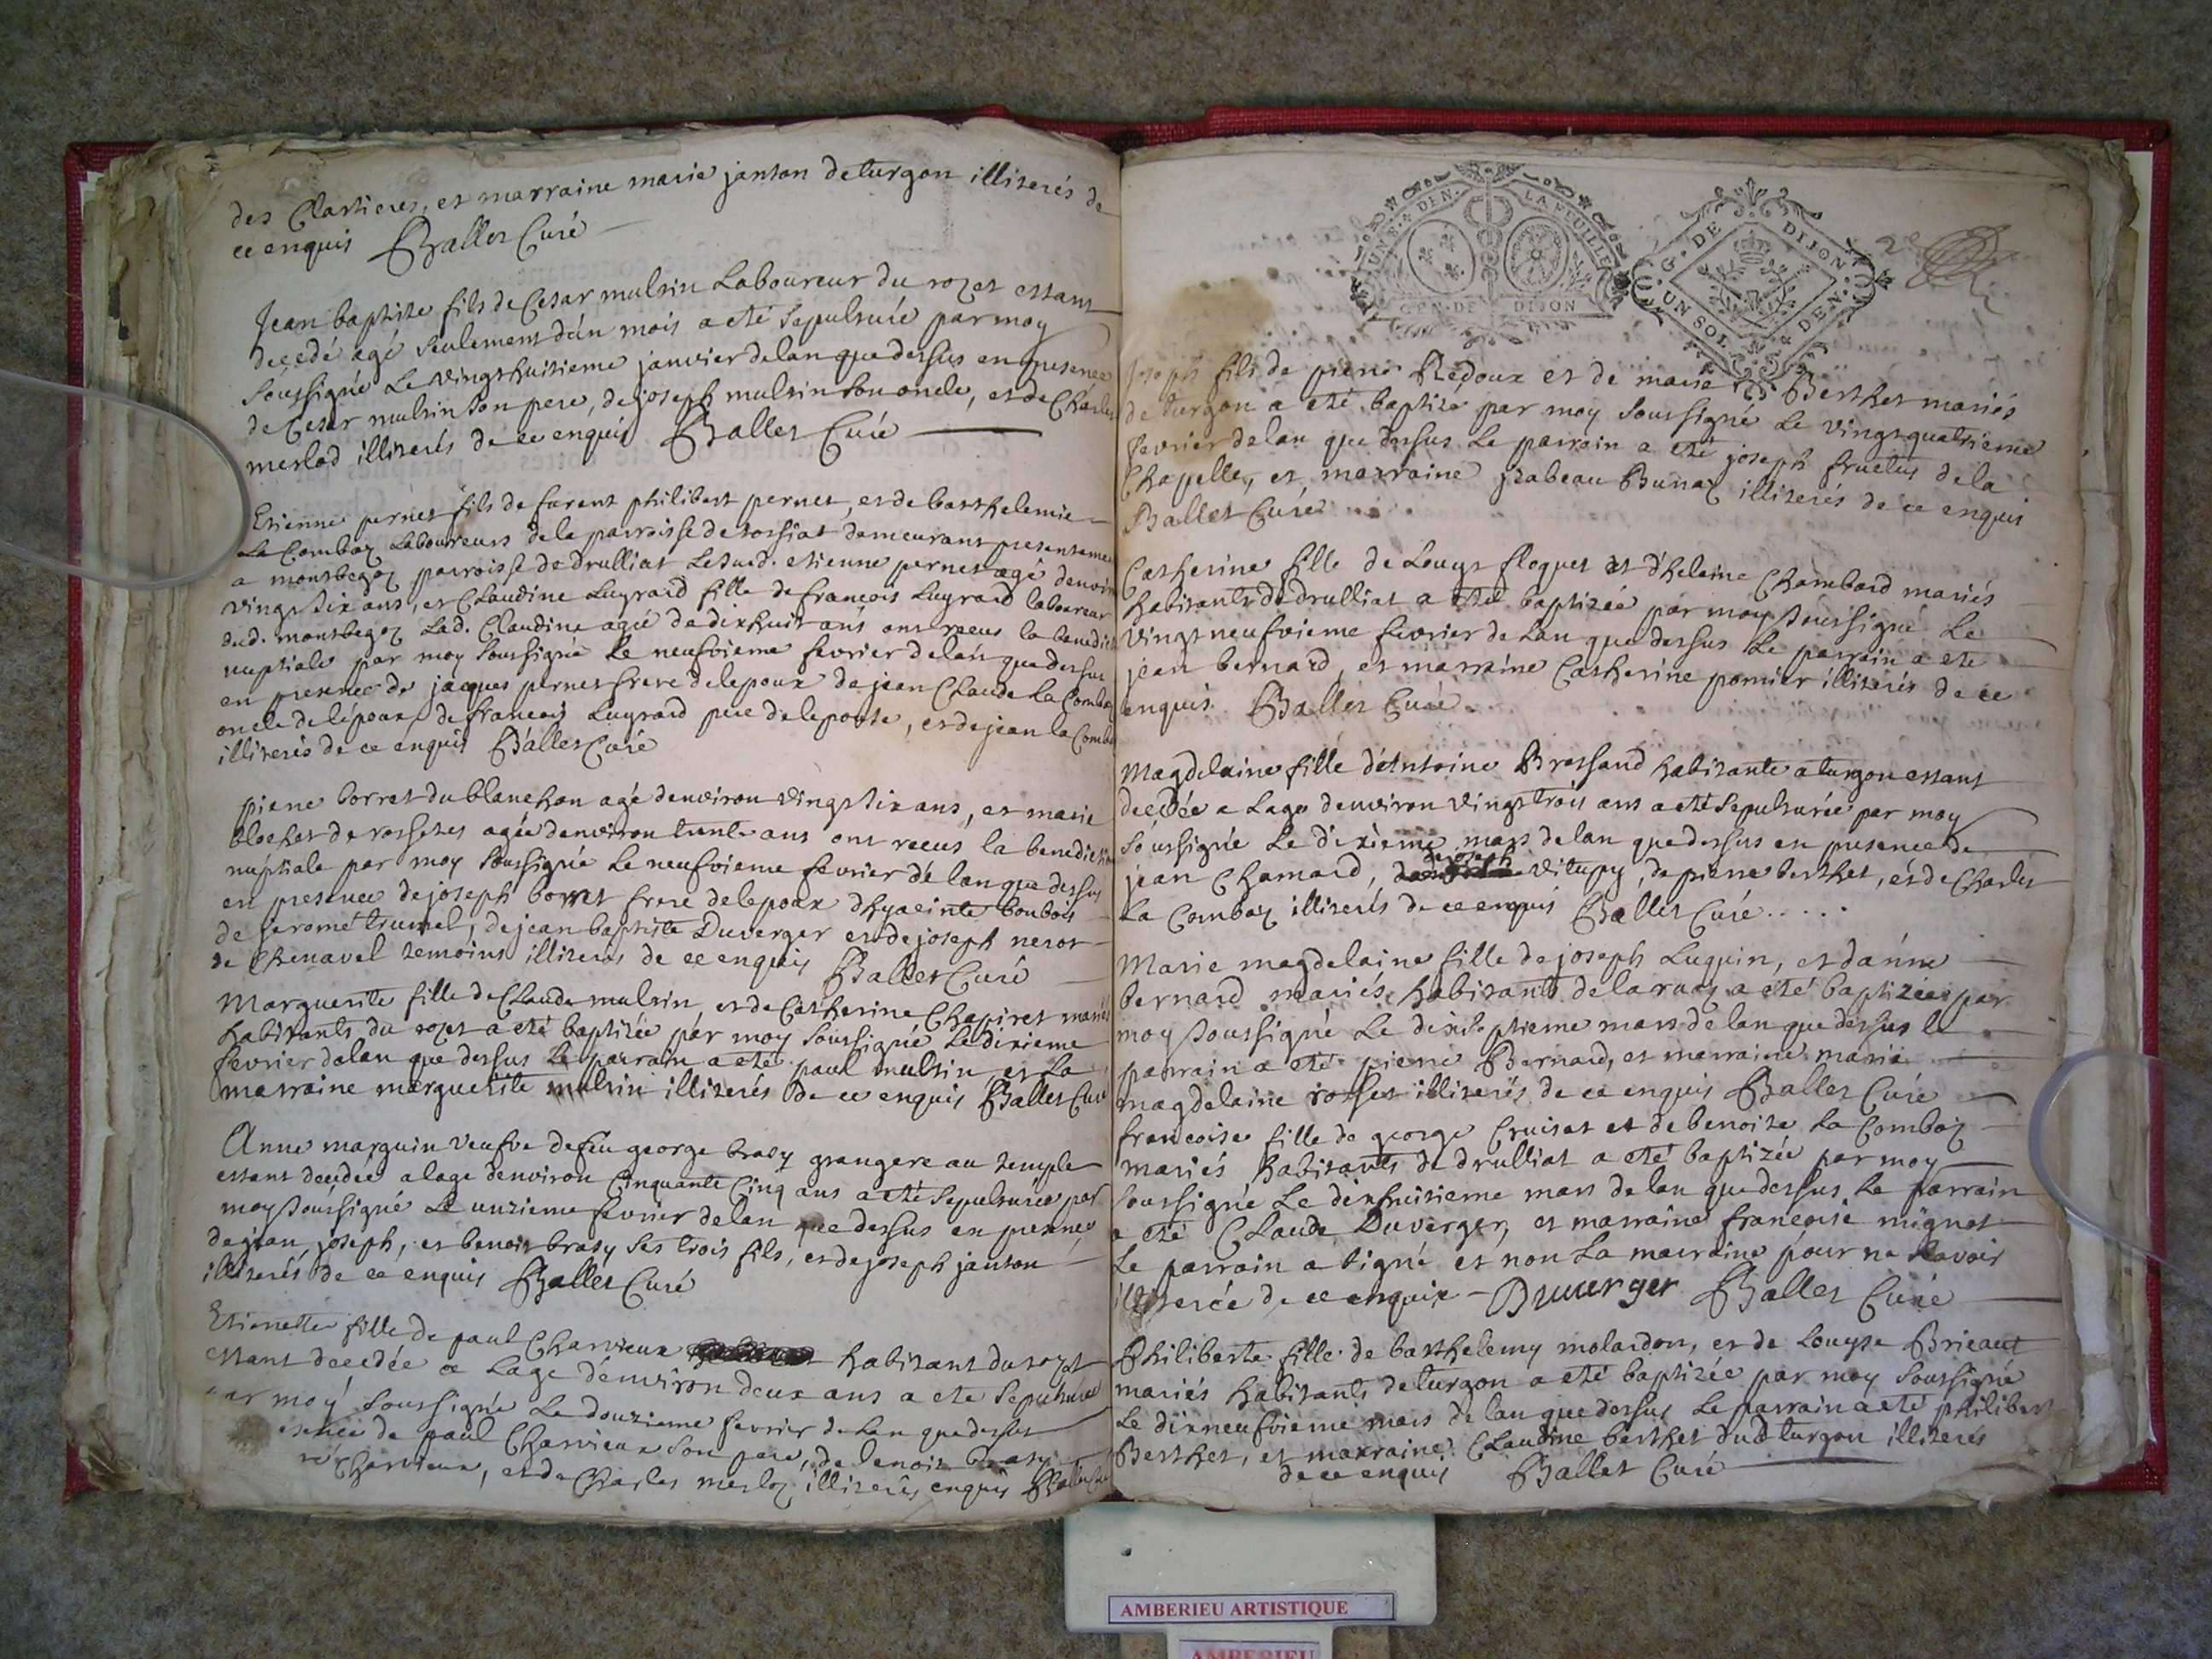 des Clartieres, et marraine marie janton de turgon illiterés de
ce enquis Ballet Curé
Jean baptiste fils de Cesar multin Laboureur du rozet estant
decedé agé seulement d'un mois a eté sepulturé par moy
soussigné Le vingt huitieme janvier de lan que dessus en presence
de Cesar multin son pere, de joseph multin son oncle, et de Charles
merlod illiterés de ce enquis Ballet Curé
Etienne pernet fils de furent philibert pernet, et de barthelemie
La Combaz Laboureurs de la parroisse de tossiat demeurant presenteme
a montbegoz parroisse de drulliat Ledit d. etienne pernet agé denviron
vingt six ans, et Claudine Lugrand fille de francois Lugrand laboureur
dud. montbegoz Lad. Claudine agée de dix huit ans ont receu la benedict
nuptiale par moy soussigné Le neufvieme fevrier de lan que dessus
en presence de jacques pernet frere de lepoux de jean Claude La Combaz
oncle de lépoux, de francois Lugrand pere de lepouse, et de jean la Comba
illiterés de ce enquis Ballet Curé
pierre borret du blanchon agé denviron vingt six ans, et marie
blochet de rossetes agée denviron trente ans ont receu la benedictio
nuptiale par moy soussigné Le neufvieme fevrier de lan que dessus
en presence de joseph borret frere de lepoux d'hyacinte boubois
de jerome trumel, de jean baptiste Duverger et de joseph nerot
de Chenavel temoins illiterés de ce enquis Ballet Curé
Marguerite fille de Claude multin et de Catherine Chapiret mariés
habitants du rozet a eté baptizée par moy soussigné Le dixieme
fevrier de lan que dessus Le parrain a eté paul multin, et La
marraine marguerite multin illiterés de ce enquis Ballet Curé
Anne marguin veufve de feu george brasy grangere au temple
estant decedée a lage denviron Cinquante Cinq ans a eté sepulturée par
moy soussigné Le unzieme fevrier de lan que dessus en presence
de jean, joseph, et benoit brasy ses trois fils, et de joseph janton
illiterés de ce enquis Ballet Curé
Etienette fille de paul Charvieux habitant du rozet
estant decedée a Lage d'environ deux ans a eté sepulturée
par moy soussigné Le douzieme fevrier de Lan que dessus
esence de paul Charvieux son pere, de benoit brasy
Charvieux, et de Charles merloz illiterés enquis Ballet Curé
UNE. DEN. LA FEUILLE
GEN. DE DIJON
G. DE DIJON
UN SOL. DEN.
2e
Joseph fils de pierre Redoux et de marie Berthet mariés
de turgon a eté baptizé par moy soussigné Le vingt quatrieme
fevrier de lan que dessus Le parrain a eté joseph fructus de la
Chapelle, et marraine jzabeau Bunaz illiterés de ce enquis
Ballet Curé
Catherine fille de Louys floquet et d'heleine Chambard mariés
habitants de drulliat a eté baptizée par moy soussigné Le
vingt neufvieme fevrier de Lan que dessus Le parrain a eté
jean bernard, et marraine Catherine pomier illiterés de ce
enquis Ballet Curé
Magdelaine fille d'Antoine Brossand habitante a turgon estant
decedée a Lage denviron vingt trois ans a eté sepulturée par moy
soussigné Le dixieme mars de lan que dessus en presence de
jean Chamard, de joseph vitupy, de pierre berthet, et de Charles
La Combaz illiterés de ce enquis Ballet Curé
Marie magdelaine fille de joseph Luquin, et danne
bernard mariés habitants de la ruaz a eté baptizée par
moy soussigné Le dixseptieme mars de lan que dessus le
parrain a eté pierre Bernard, et marraine marie
magdelaine rosset illiterés de ce enquis Ballet Curé
francoise fille de george Cruiset et de benoite La Combaz
mariés habitants de drulliat a eté baptizée par moy
soussigné Le dixhuitieme mars de lan que dessus Le parrain
a eté Claude Duverger, et marraine francoise mignot
Le parrain a signé et non La marraine pour ne savoir
illiterée de ce enquise Duuerger Ballet Curé
Philiberte fille de barthelemy molardon, et de Louyse Bricaut
mariés habitants de turgon a eté baptizée par moy soussigné
Le dixneufvieme mars de lan que dessus Le parrain a eté philibert
Berthet, et marraine Claudine berthet dud turgon illiterés
de ce enquis Ballet Curé
AMBERIEU ARTISTIQUE
AMBERIEU